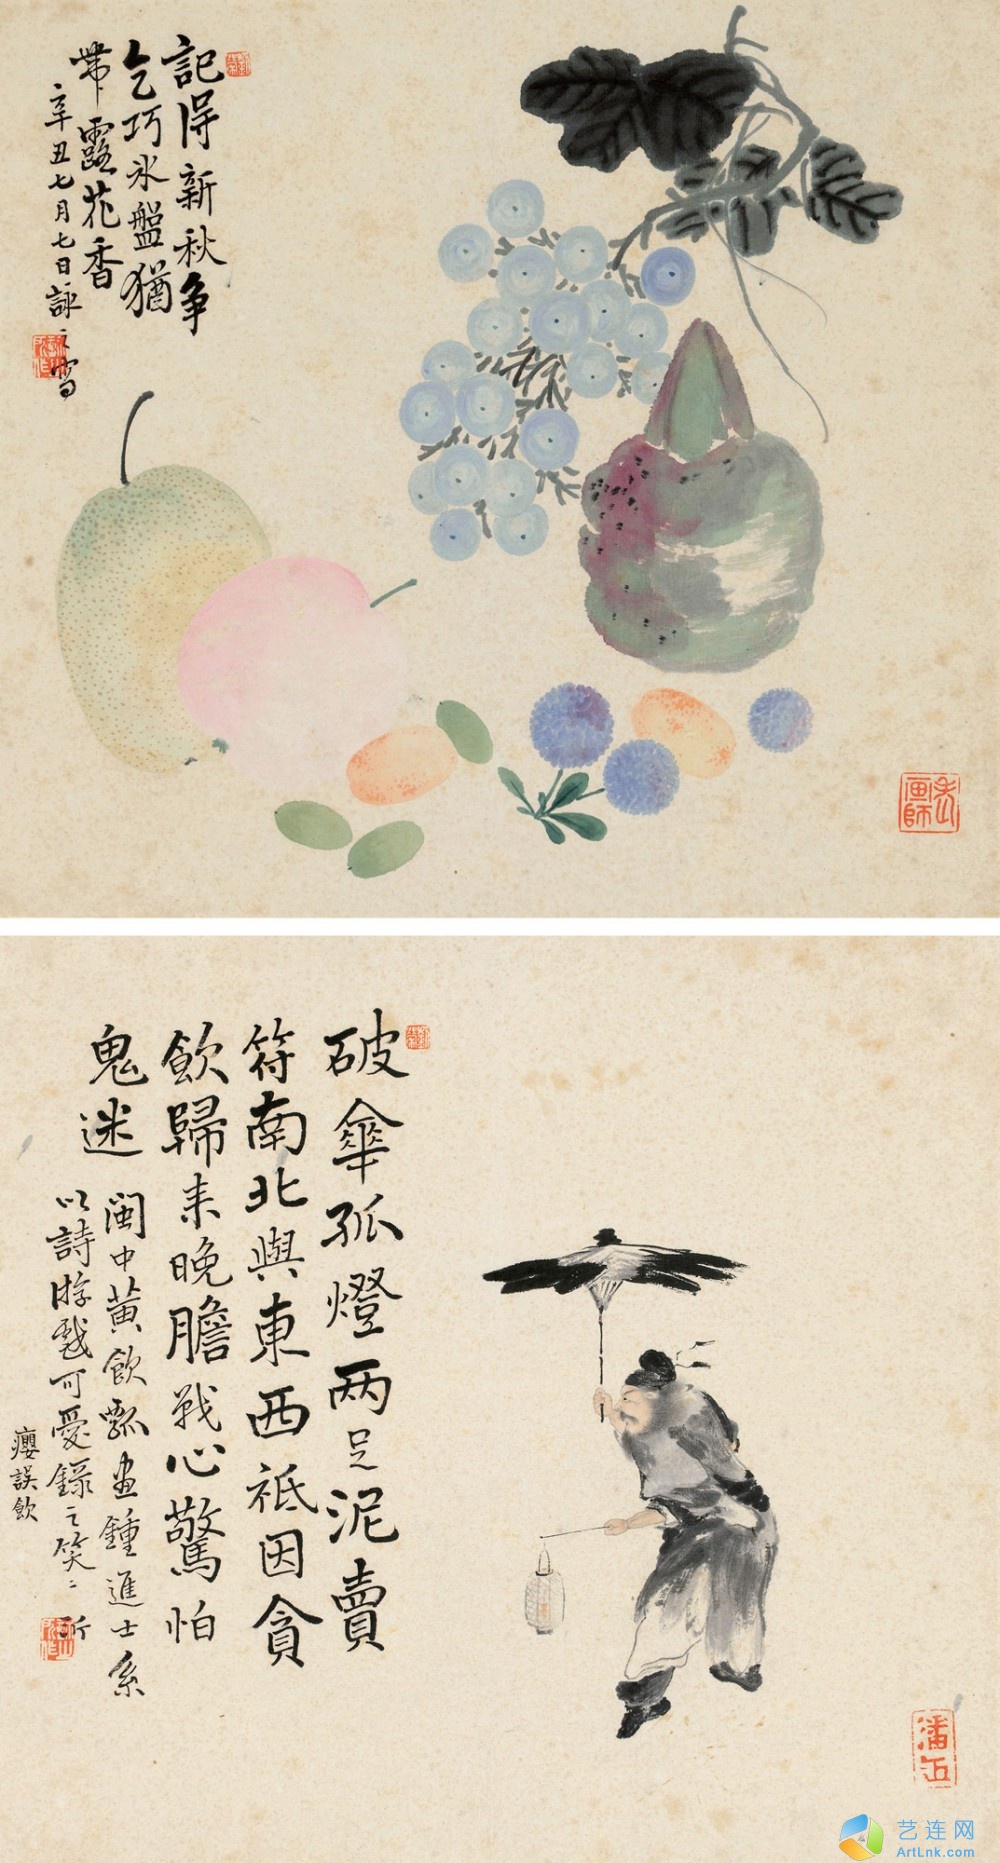 記得新秋争
乞巧氷盤猶
帶露花香
辛丑七月七日詠之雪
画師
破傘孤燈两足泥賣
符南北與東西祇因貪
飲歸来晚膽戰心驚怕
鬼迷
閩中黄飲瓢画鍾進士系
以詩游戲可愛錄之笑二
癭誤飲
艺连网
ArtLnk.com